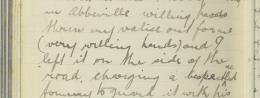 in Abbeville willing hands
threw my valise out for me
(very willing hands) and I
left it on the side of the
road, charging a bespectacled
tommy to guard it with his